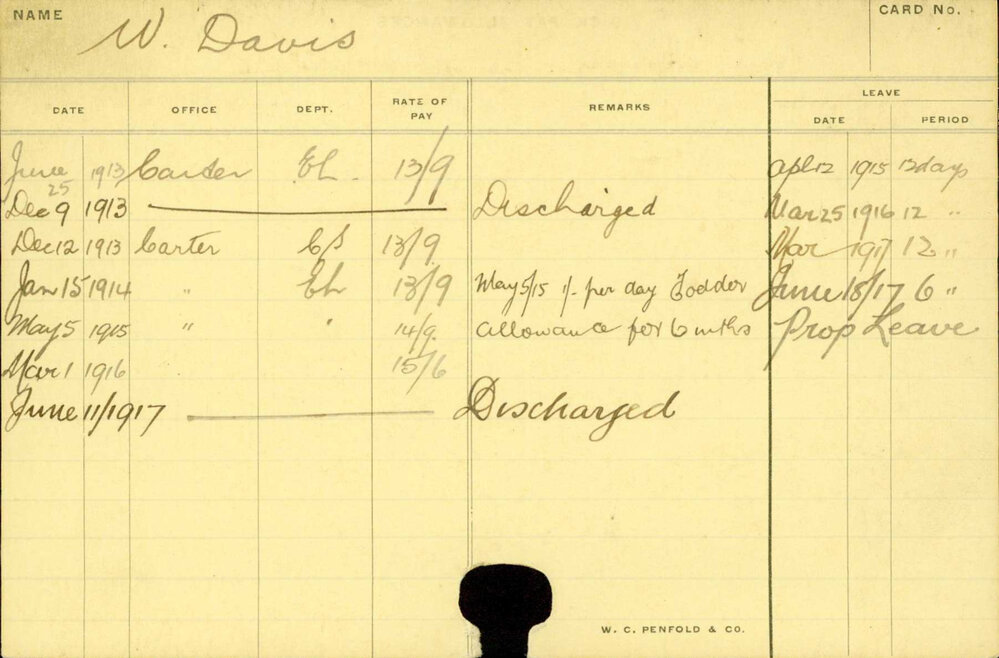 NAME W. Davis CARD No.
LEAVE
DATE OFFICE DEPT. RATE OF PAY REMARKS DATE PERIOD
June 25 1913 Carter EL. 13/9 Apl 12 1915 12 days
Dec 9 1913 Discharged Mar 25 1916 12 "
Dec 12 1913 Carter 13/9 Mar 1917 12 "
Jan 15 1914 " EL 13/9 May 5/15 1/- per day Fodder June 18/17 6 "
May 5 1915 " " 14/9. allowance for 6 mths Prop Leave
Mar 1 1916 15/6
June 11/1917 Discharged
W. C. PENFOLD & CO.